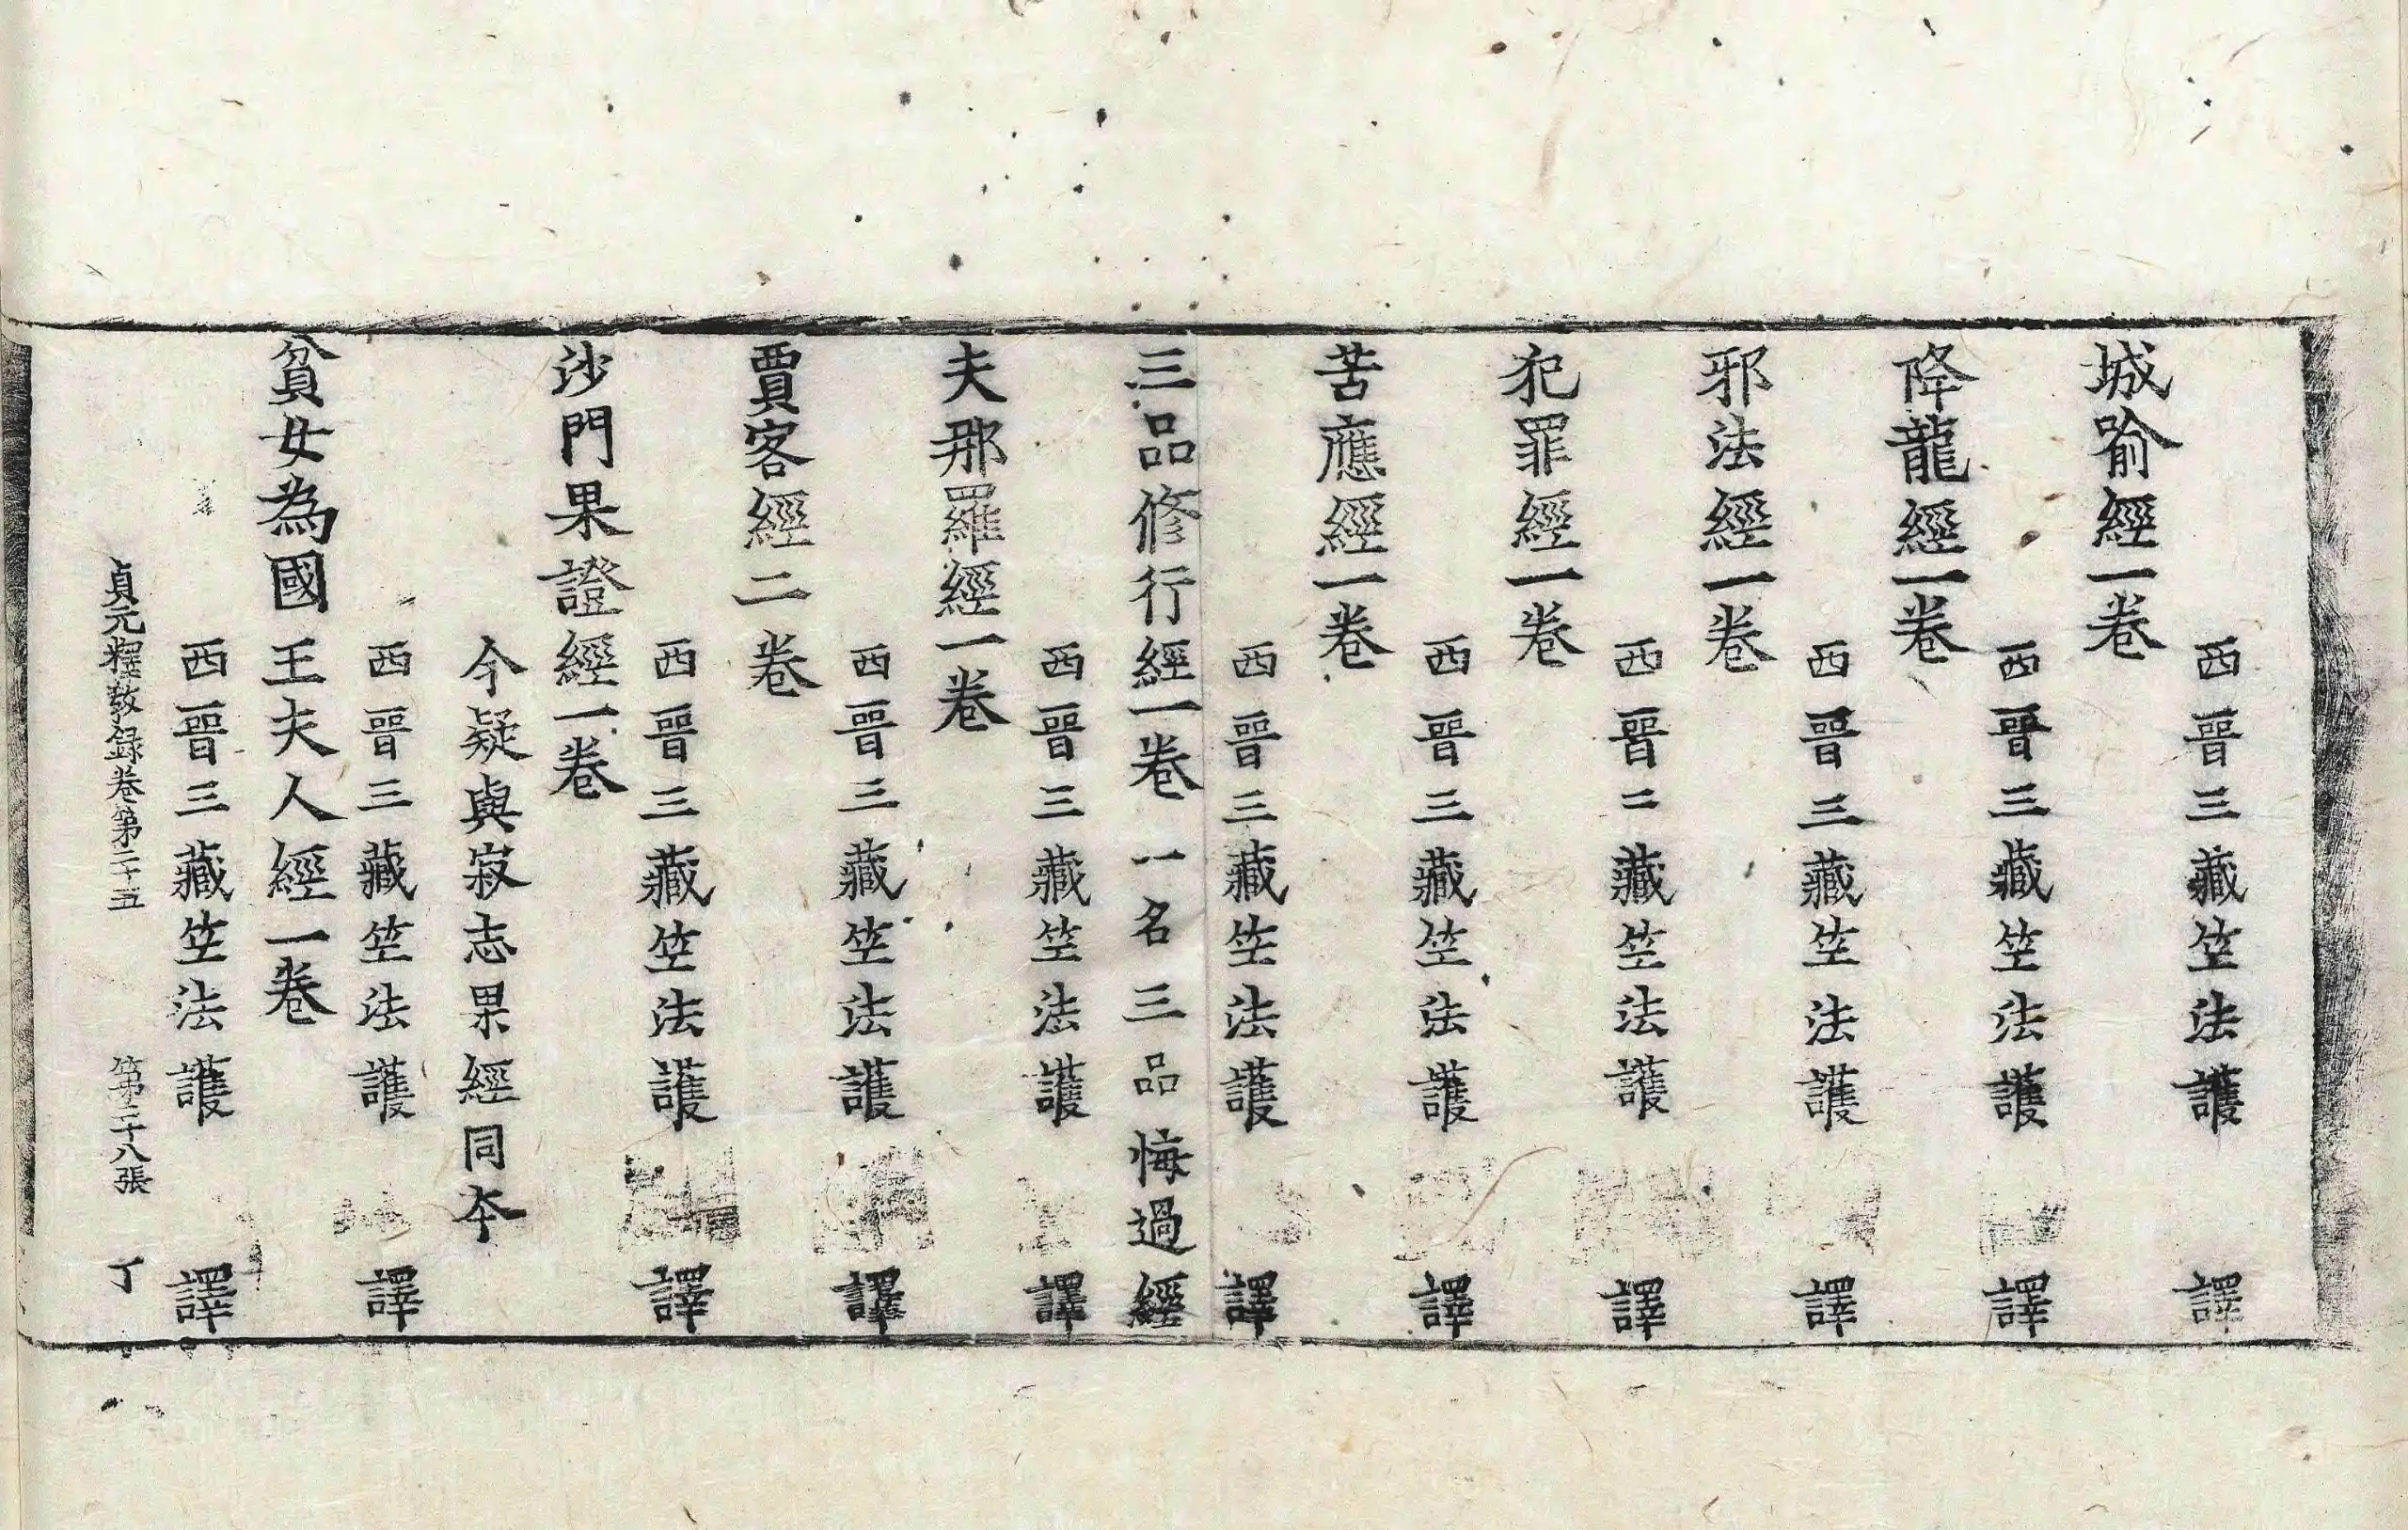 西晉三藏竺法護譯
城喻經一卷
西晉三藏竺法護譯
降龍經一卷
西晉三藏竺法護譯
邪法經一卷
西晉二藏竺法護譯
犯罪經一卷
西晉三藏竺法護譯
苦應經一卷
西晉三藏竺法護譯
三品修行經一卷 一名三品悔過經
西晉三藏竺法護譯
夫那羅經一卷
西晉三藏竺法護譯
賈客經二卷
西晉三藏竺法護譯
沙門果證經一卷
今疑與寂志果經同夲
西晉三藏竺法護譯
貧女為國王夫人經一卷
西晉三藏竺法護譯
貞元釋教録卷第二十五 第二十八張 丁